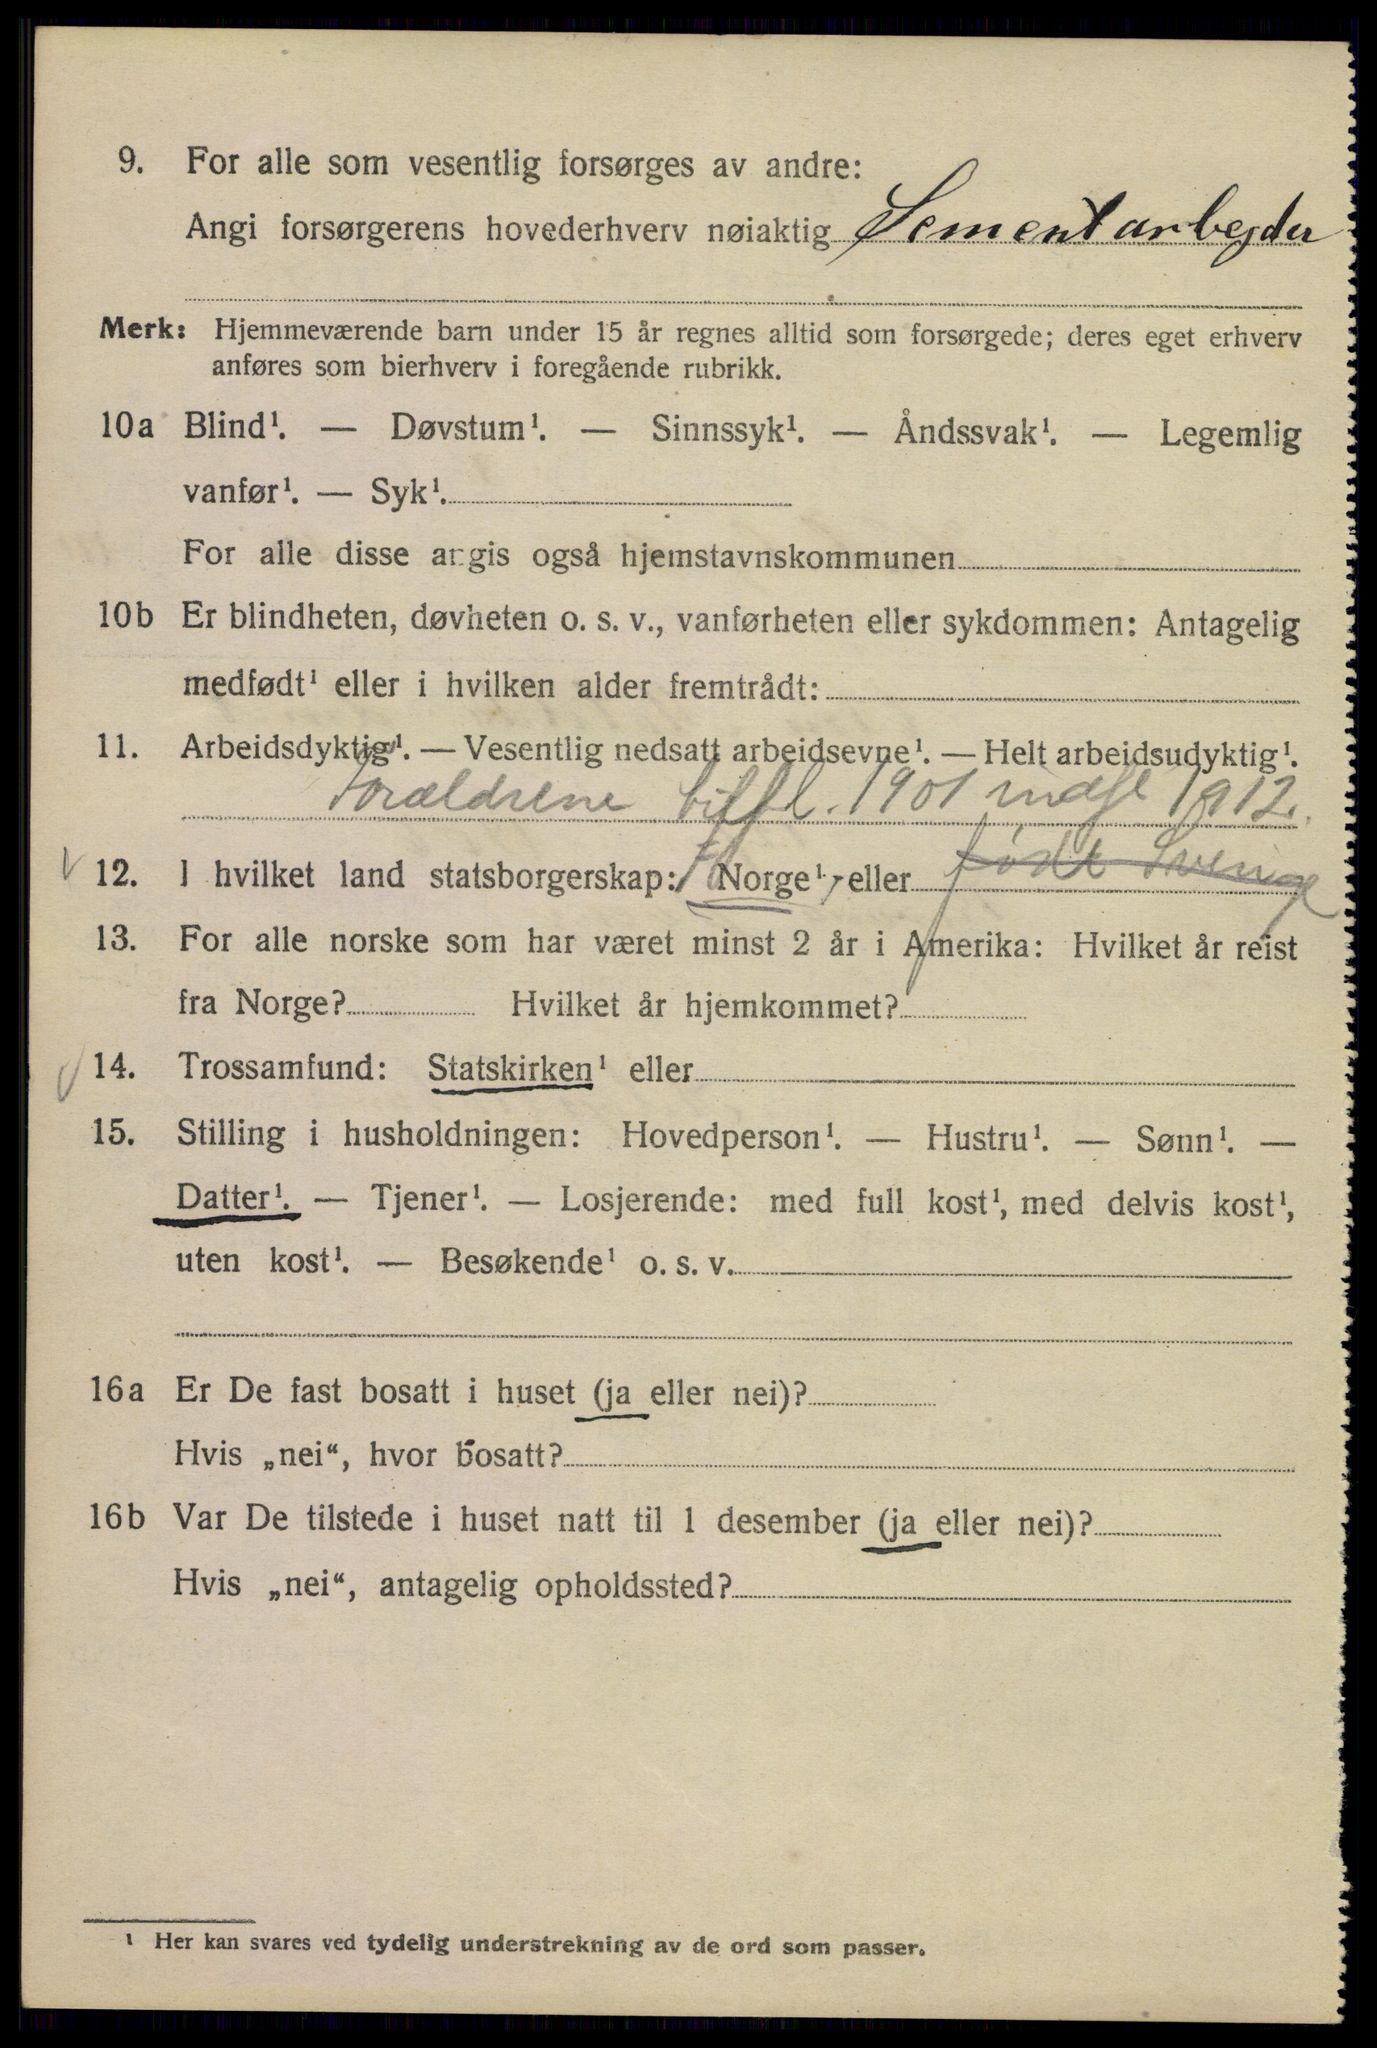 9. For alle som vesentlig forsørges av andre:
Angi forsørgerens hovederhverv nøiaktig Sementarbejder
Merk: Hjemmeværende barn under 15 år regnes alltid som forsørgede; deres eget erhverv
anføres som bierhverv i foregående rubrikk.
10a Blind¹. — Døvstum¹. — Sinnssyk¹. — Åndssvak¹. — Legemlig
vanfør¹. — Syk¹.
For alle disse angis også hjemstavnskommunen
10b Er blindheten, døvheten o. s. v., vanførheten eller sykdommen: Antagelig
medfødt¹ eller i hvilken alder fremtrådt:
11. Arbeidsdyktig¹. — Vesentlig nedsatt arbeidsevne¹. — Helt arbeidsudyktig¹.
Forældrene tilfl. 1901 indfl 1912.
12. I hvilket land statsborgerskap: Norge¹, eller født Sverige
13. For alle norske som har været minst 2 år i Amerika: Hvilket år reist
fra Norge? Hvilket år hjemkommet?
14. Trossamfund: Statskirken¹ eller
15. Stilling i husholdningen: Hovedperson¹. — Hustru¹. — Sønn¹. —
Datter¹. — Tjener¹. — Losjerende: med full kost¹, med delvis kost¹,
uten kost¹. — Besøkende¹ o. s. v.
16a Er De fast bosatt i huset (ja eller nei)?
Hvis „nei“, hvor bosatt?
16b Var De tilstede i huset natt til 1 desember (ja eller nei)?
Hvis „nei“, antagelig opholdssted?
¹ Her kan svares ved tydelig understrekning av de ord som passer.